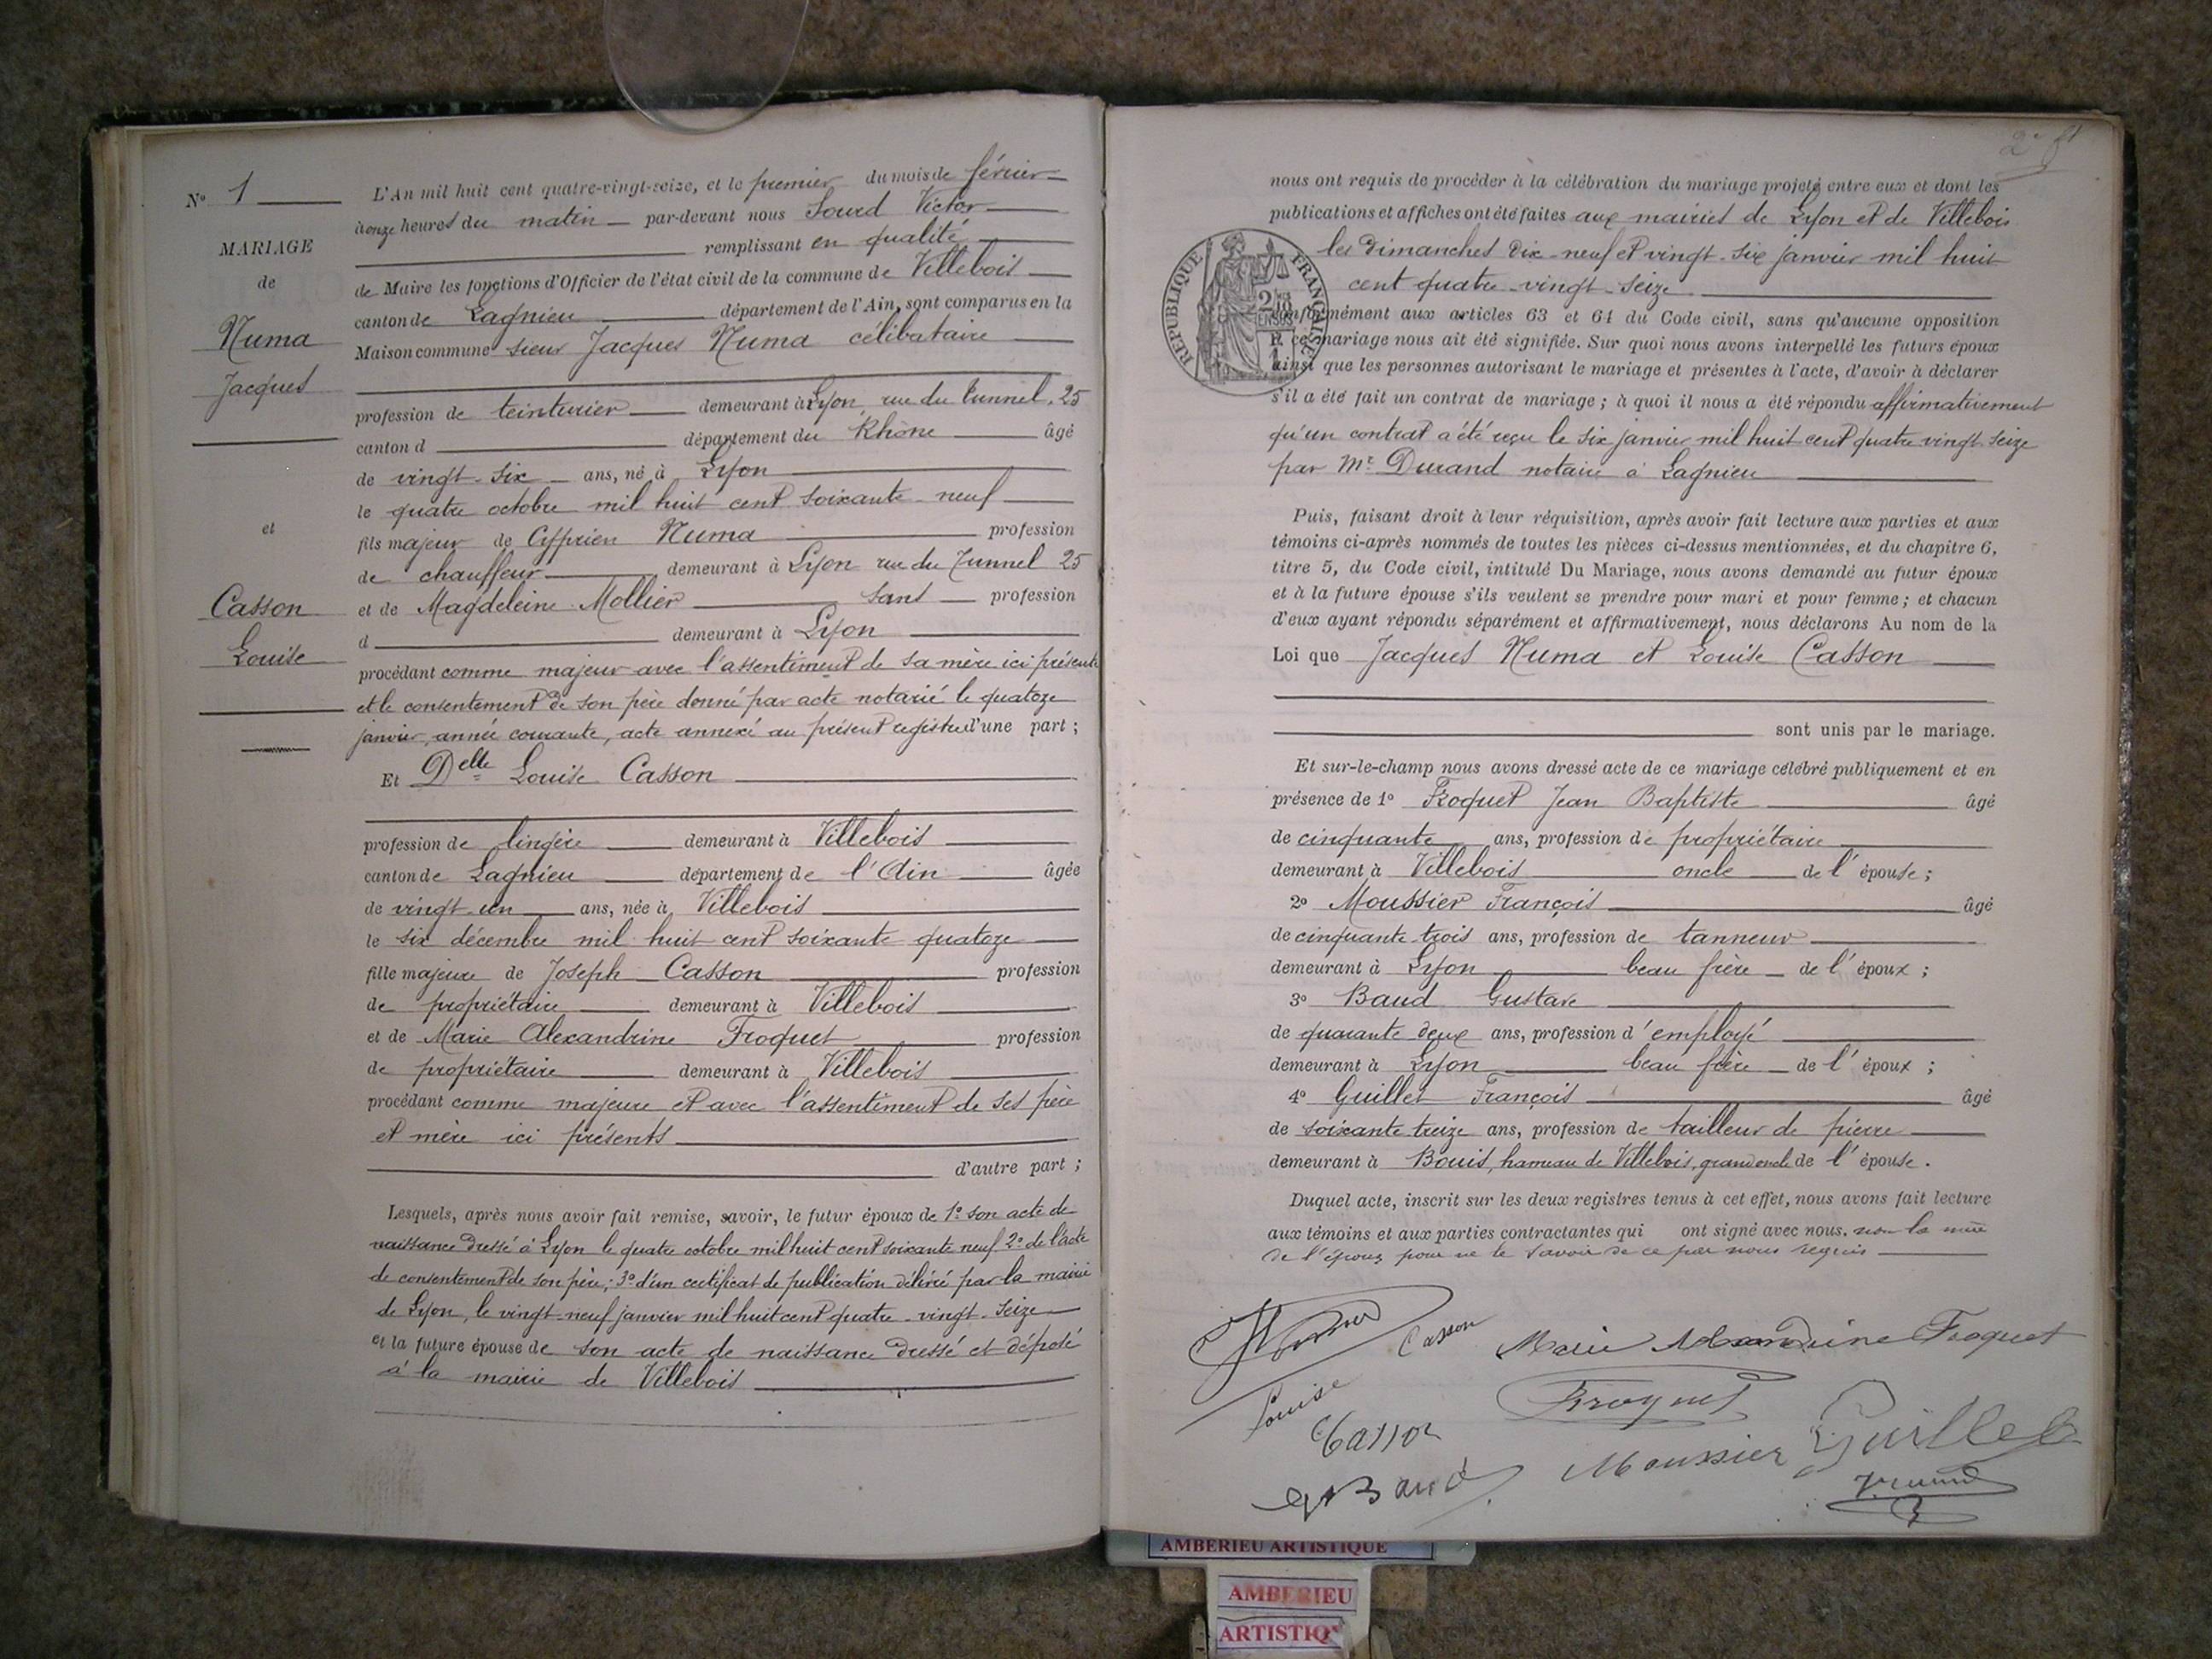 N° 1
MARIAGE
de
Numa
Jacques
et
Casson
Louise
L'An mil huit cent quatre-vingt-seize, et le premier du mois de février
à onze heures du matin par-devant nous Sourd Victor
remplissant en qualité
de Maire les fonctions d'Officier de l'état civil de la commune de Villebois
canton de Lagnieu département de l'Ain, sont comparus en la
Maison commune sieur Jacques Numa célibataire
profession de teinturier demeurant à Lyon, rue du Tunnel, 25
canton d département du Rhône âgé
de vingt-six ans, né à Lyon
le quatre octobre mil huit cent soixante-neuf
fils majeur de Cyprien Numa profession
de chauffeur demeurant à Lyon rue du Tunnel 25
et de Magdeleine Mollier sans profession
d demeurant à Lyon
procédant comme majeur avec l'assentiment de sa mère ici présente
et le consentement de son père donné par acte notarié le quatoze
janvier, année courante, acte annexé au présent registre d'une part ;
Et Delle Louise Casson
profession de lingère demeurant à Villebois
canton de Lagnieu département de l'Ain âgée
de vingt-un ans, née à Villebois
le six décembre mil huit cent soixante quatoze
fille majeure de Joseph Casson profession
de propriétaire demeurant à Villebois
et de Marie Alexandrine Froquet profession
de propriétaire demeurant à Villebois
procédant comme majeure et avec l'assentiment de ses père
et mère ici présents
d'autre part ;
Lesquels, après nous avoir fait remise, savoir, le futur époux de 1° son acte de
naissance dressé à Lyon le quatre octobre mil huit cent soixante neuf 2° de l'acte
de consentement de son père ; 3° d'un certificat de publication délivré par la mairie
de Lyon, le vingt-neuf janvier mil huit cent quatre-vingt-seize
et la future épouse de son acte de naissance dressé et déposé
à la mairie de Villebois
nous ont requis de procéder à la célébration du mariage projeté entre eux et dont les
publications et affiches ont été faites aux mairies de Lyon et de Villebois
les dimanches dix-neuf et vingt-six janvier mil huit
cent quatre-vingt-seize
RÉPUBLIQUE FRANÇAISE
conformément aux articles 63 et 64 du Code civil, sans qu'aucune opposition
à ce mariage nous ait été signifiée. Sur quoi nous avons interpellé les futurs époux
ainsi que les personnes autorisant le mariage et présentes à l'acte, d'avoir à déclarer
s'il a été fait un contrat de mariage ; à quoi il nous a été répondu affirmativement
qu'un contrat a été reçu le six janvier mil huit cent quatre vingt-seize
par Me Durand notaire à Lagnieu
Puis, faisant droit à leur réquisition, après avoir fait lecture aux parties et aux
témoins ci-après nommés de toutes les pièces ci-dessus mentionnées, et du chapitre 6,
titre 5, du Code civil, intitulé Du Mariage, nous avons demandé au futur époux
et à la future épouse s'ils veulent se prendre pour mari et pour femme ; et chacun
d'eux ayant répondu séparément et affirmativement, nous déclarons Au nom de la
Loi que Jacques Numa et Louise Casson
sont unis par le mariage.
Et sur-le-champ nous avons dressé acte de ce mariage célébré publiquement et en
présence de 1° Froquet Jean Baptiste âgé
de cinquante ans, profession de propriétaire
demeurant à Villebois oncle de l'épouse ;
2° Moussier François âgé
de cinquante trois ans, profession de tanneur
demeurant à Lyon beau frère de l'époux ;
3° Baud Gustave
de quarante deux ans, profession d'employé
demeurant à Lyon beau frère de l'époux ;
4° Guillet François âgé
de soixante treize ans, profession de tailleur de pierre
demeurant à Bouis, hameau de Villebois, grand oncle de l'épouse.
Duquel acte, inscrit sur les deux registres tenus à cet effet, nous avons fait lecture
aux témoins et aux parties contractantes qui ont signé avec nous, non la mère
de l'époux pour ne le savoir de ce par nous requis
Casson
Marie Alexandrine Froquet
Louise
Casson
Froquet
Guillet
Baud
Moussier
AMBERIEU ARTISTIQUE
AMBERIEU
ARTISTIQ